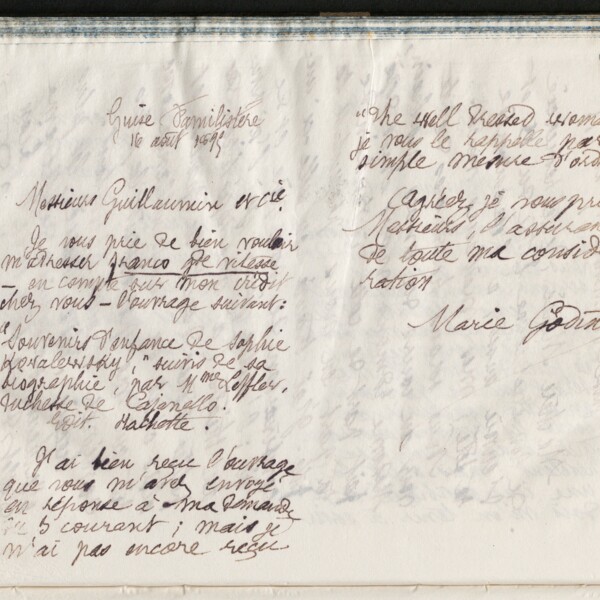 Guise Familistère
16 août 1895
Messieurs Guillaumin et cie.
Je vous prie de bien vouloir
m'adresser franco gde vitesse
– en compte sur mon crédit
chez vous – l'ouvrage suivant:
"Souvenirs d'enfance de Sophie
Kovalewsky," suivis de sa
biographie, par Mme Leffler,
duchesse de Cajanello.
Edit. Hachette.
J'ai bien reçu l'ouvrage
que vous m'avez envoyé
en réponse à ma demande
5 courant; mais je
n'ai pas encore reçu
"The well dressed woma
je vous le rappelle par
simple mesure d'ord
Agréez, je vous pri
Messieurs, l'assuran
de toute ma consid
ration
Marie Godin